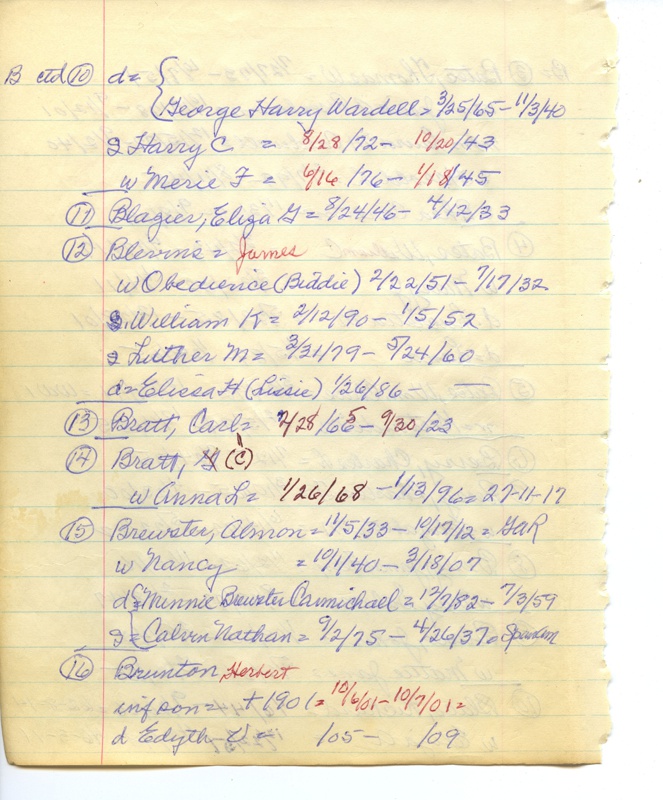 B ctd (10) d = {
George Harry Wardell = 3/25/65 - 11/3/40
s Harry C = 8/28/72 - 10/20/43
w Merie F = 6/16/76 - 1/18/45
(11) Blagier, Eliza G = 8/24/46 - 4/12/33
(12) Blevins = James
w Obedience (Biddie) 2/22/51 - 7/17/32
s. William K = 2/12/90 - 1/5/52
s Luther M = 3/31/79 - 5/24/60
d = Elissa H (Lissie) 1/26/86 - —
(13) Bratt, Carl = 2/28/65 - 9/30/23
(14) Bratt, (C)
w Anna L = 1/26/68 - 1/13/96 = 27-11-17
(15) Brewster, Almon = 11/5/33 - 10/17/12 = GAR
w Nancy = 10/1/40 - 3/18/07
d = Minnie Brewster Carmichael = 12/7/82 - 7/3/59
s = Calvin Nathan = 9/2/75 - 4/26/37
(16) Brunton, Herbert
inf son = + 1901 = 10/6/01 - 10/7/01 =
d Edyth V = /05 - /09